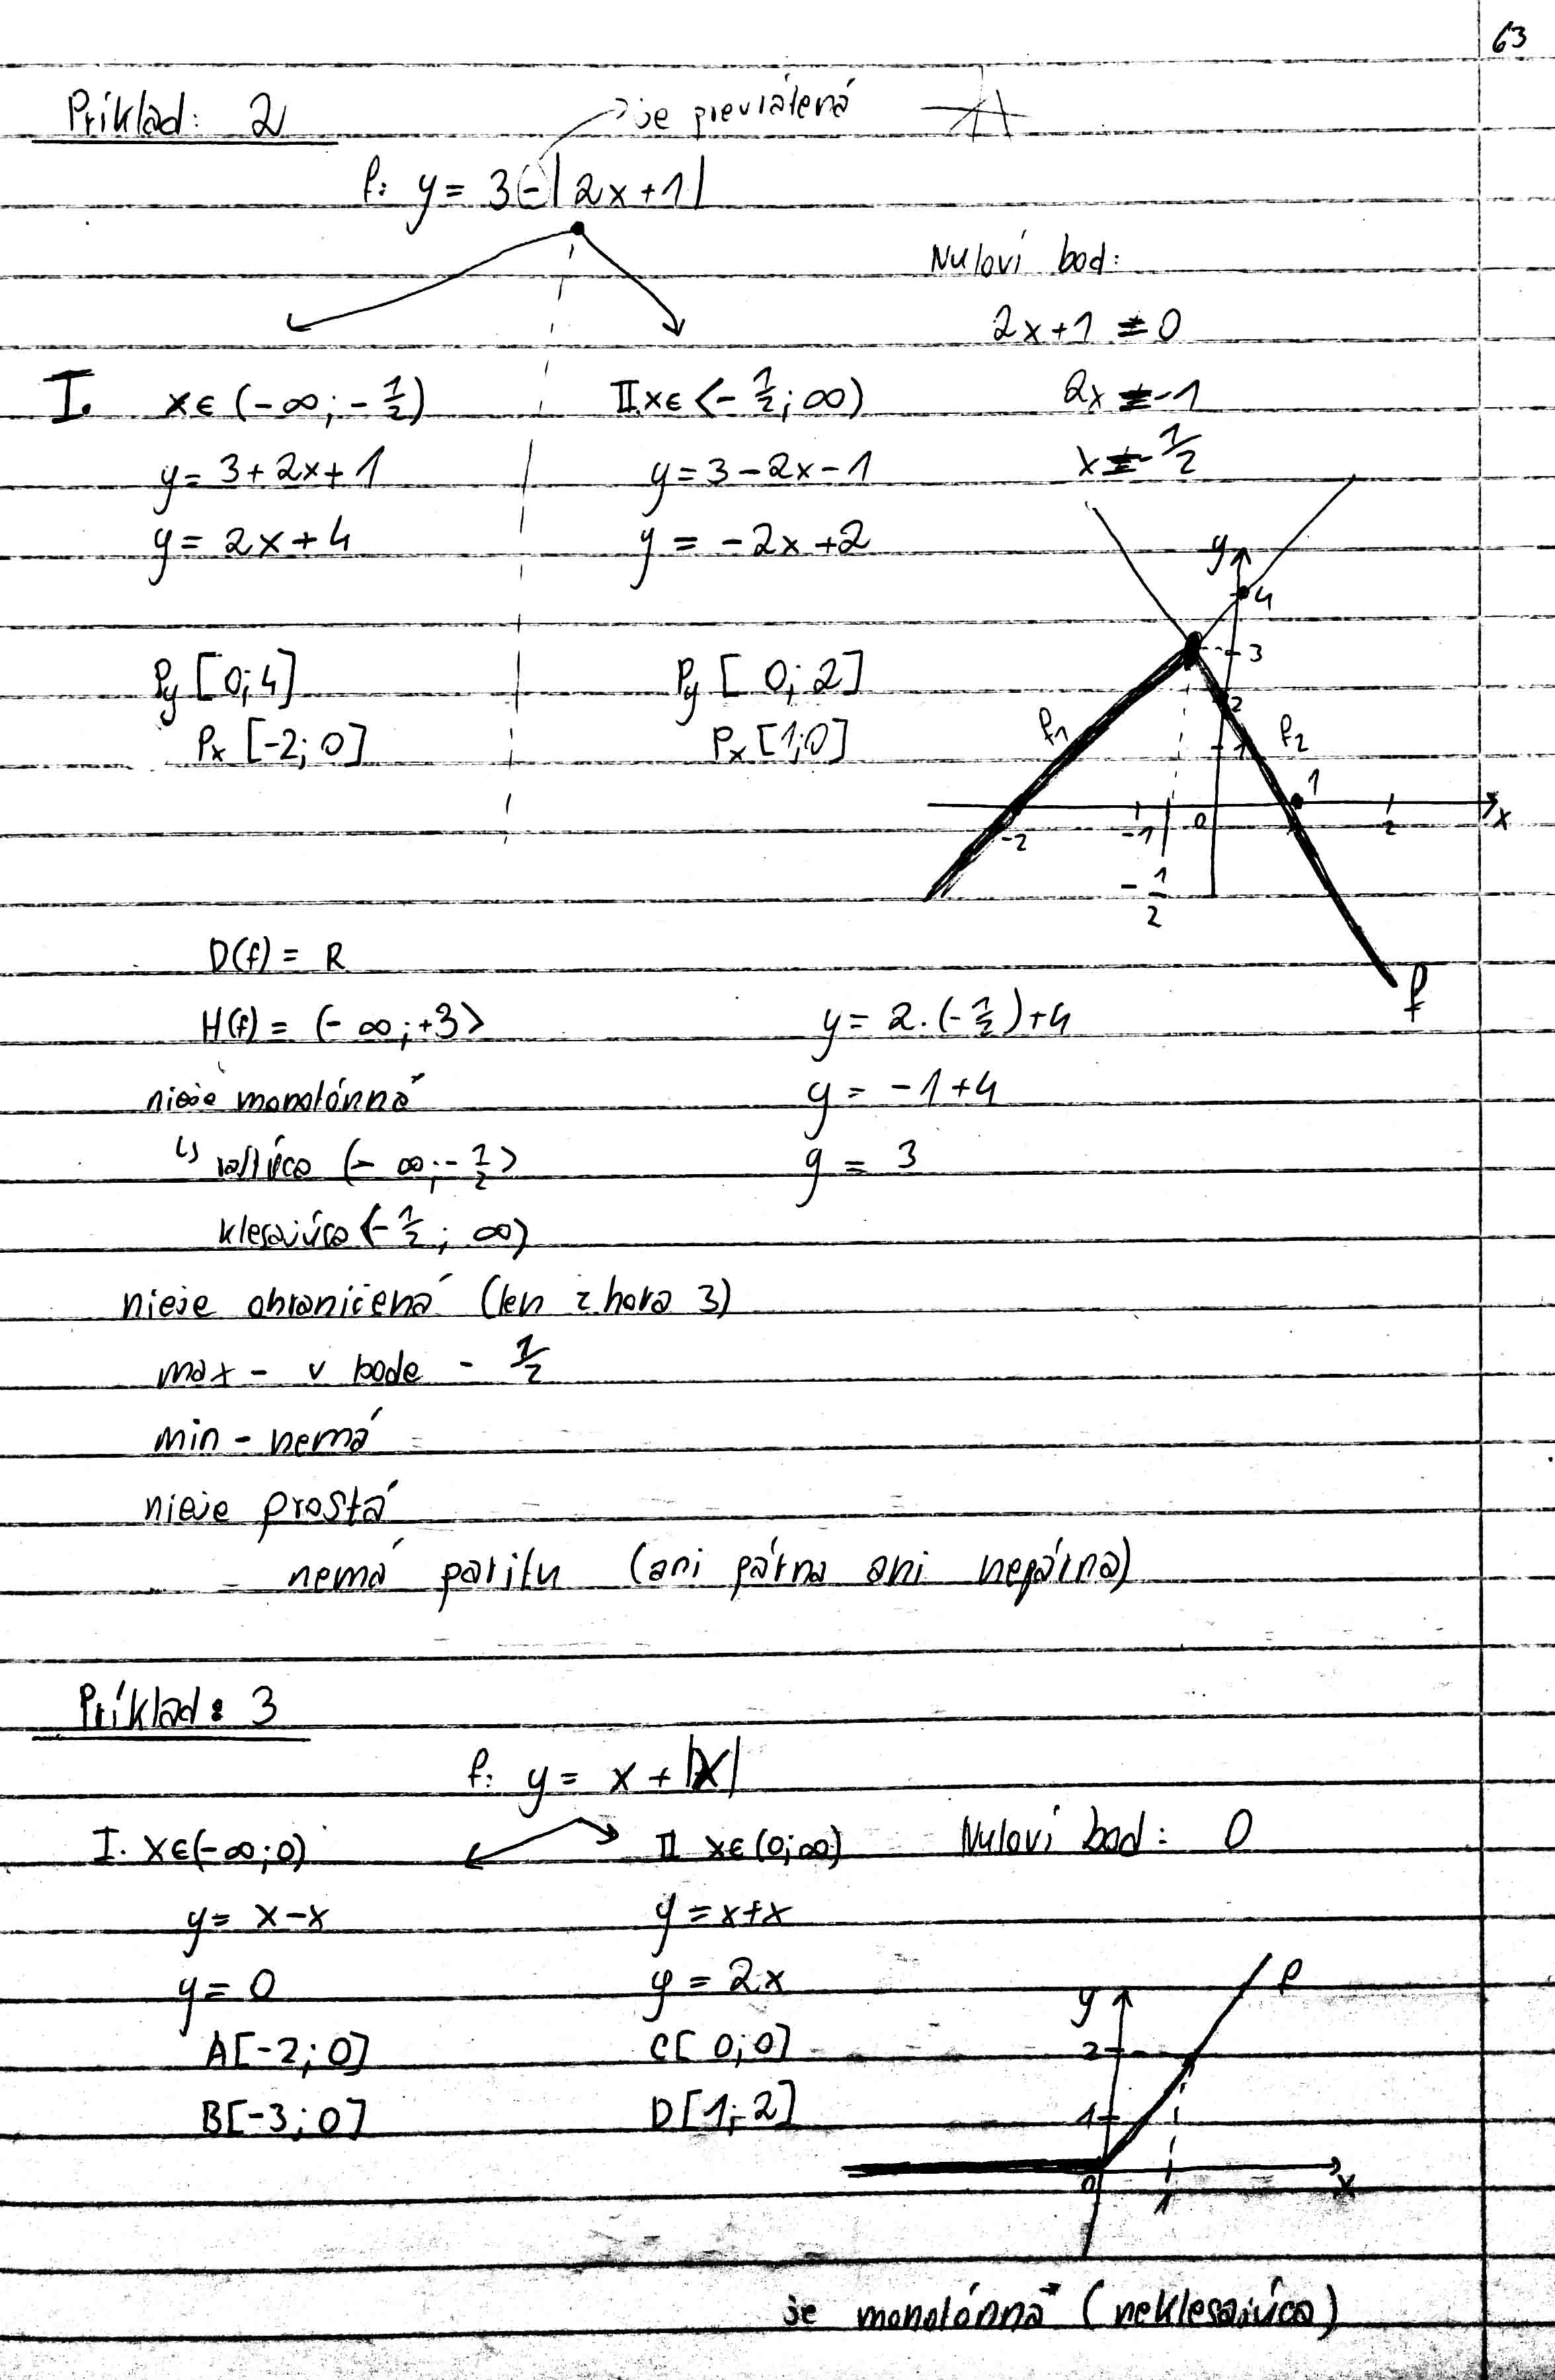 63
Príklad: 2
je prevrátená
f: y = 3 - |2x+1|
Nuloví bod:
2x+1 = 0
2x = -1
x = -1/2
I. x∈(-∞; -1/2)
y = 3+2x+1
y = 2x+4
Py [0;4]
Px [-2; 0]
II. x∈<-1/2; ∞)
y = 3-2x-1
y = -2x+2
Py [0; 2]
Px [1;0]
y
4
3
2
1
f1
f2
1
-2
-1
0
2
x
-1/2
f
D(f) = R
H(f) = (-∞; +3>
nieje monotónna
↳ rastúca (-∞; -1/2>
klesajúca <-1/2; ∞)
nieje ohraničená (len zhora 3)
max - v bode -1/2
min - nemá
nieje prostá
nemá paritu (ani párna ani nepárna)
y = 2.(-1/2)+4
y = -1+4
y = 3
Príklad: 3
f: y = x + |x|
I. x∈(-∞; 0)
y = x-x
y = 0
A[-2; 0]
B[-3; 0]
II x∈(0; ∞)
y = x+x
y = 2x
C[0; 0]
D[1; 2]
Nuloví bod: 0
y
f
2
1
0
1
x
je monotónna (neklesajúca)